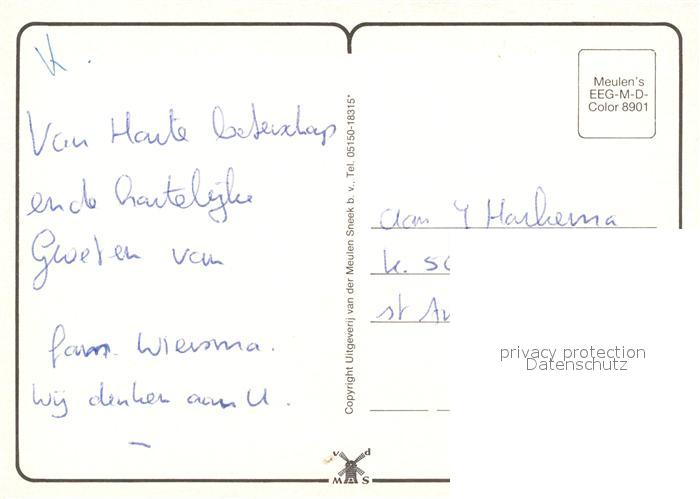 K.
Van Harte beterschap
en de hartelijke
Groeten van
fam. Wiersma.
Wij denken aan U.
Copyright Uitgeverij van der Meulen Sneek b.v., Tel. 05150-18315*
Meulen's
EEG-M-D-
Color 8901
aan Y Harkema
k. 50
st An
privacy protection
Datenschutz
v d
M S